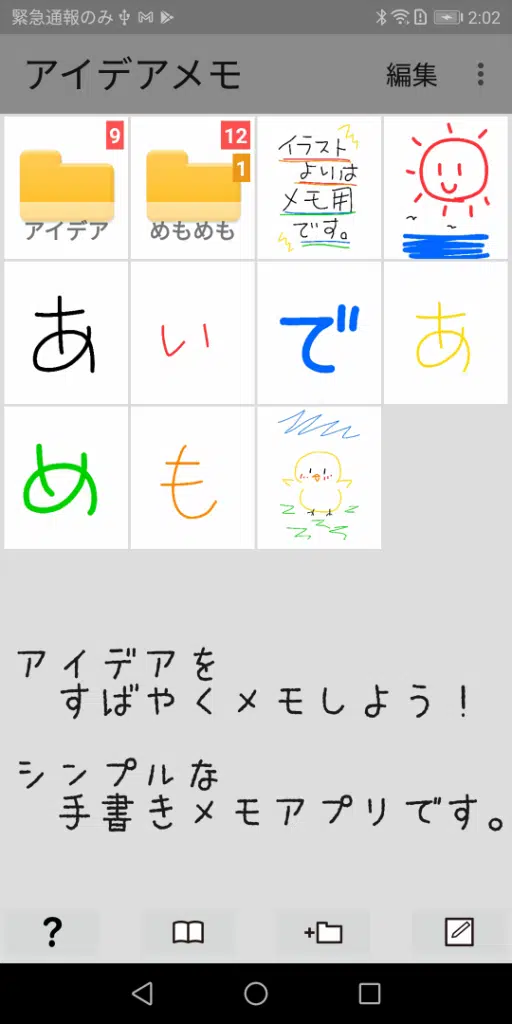 緊急通報のみ
2:02
アイデアメモ
編集
9
アイデア
12
1
めもめも
イラスト
よいは
メモ用
です。
あ
い
で
あ
め
も
アイデアを
すばやくメモしよう！
シンプルな
手書きメモアプリです。
?